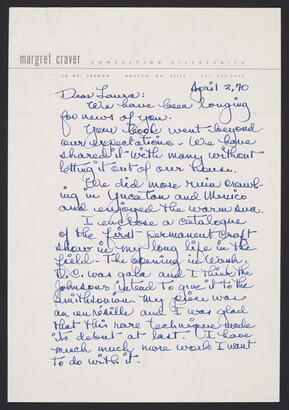 margret craver CONSULTING SILVERSMITH
MT. VERNON BOSTON, MA. 02108
April 2, 70
Dear Laura:
We have been longing
for news of you.
Your book went beyond
our expectations. We have
shared it with many without
letting it out of our house.
We did more ruin crawl-
ing in Yucatan and Mexico
and enjoyed the warm sea.
I enclose a catalogue
of the first permanent craft
show in my long life in the
field - The opening in Wash.
D.C. was gala and I think the
Johnsons intend to give it to the
Smithsonian. My piece was
an en résille and I was glad
that this rare technique made
its debut at last. I have
much much more work I want
to do with it.